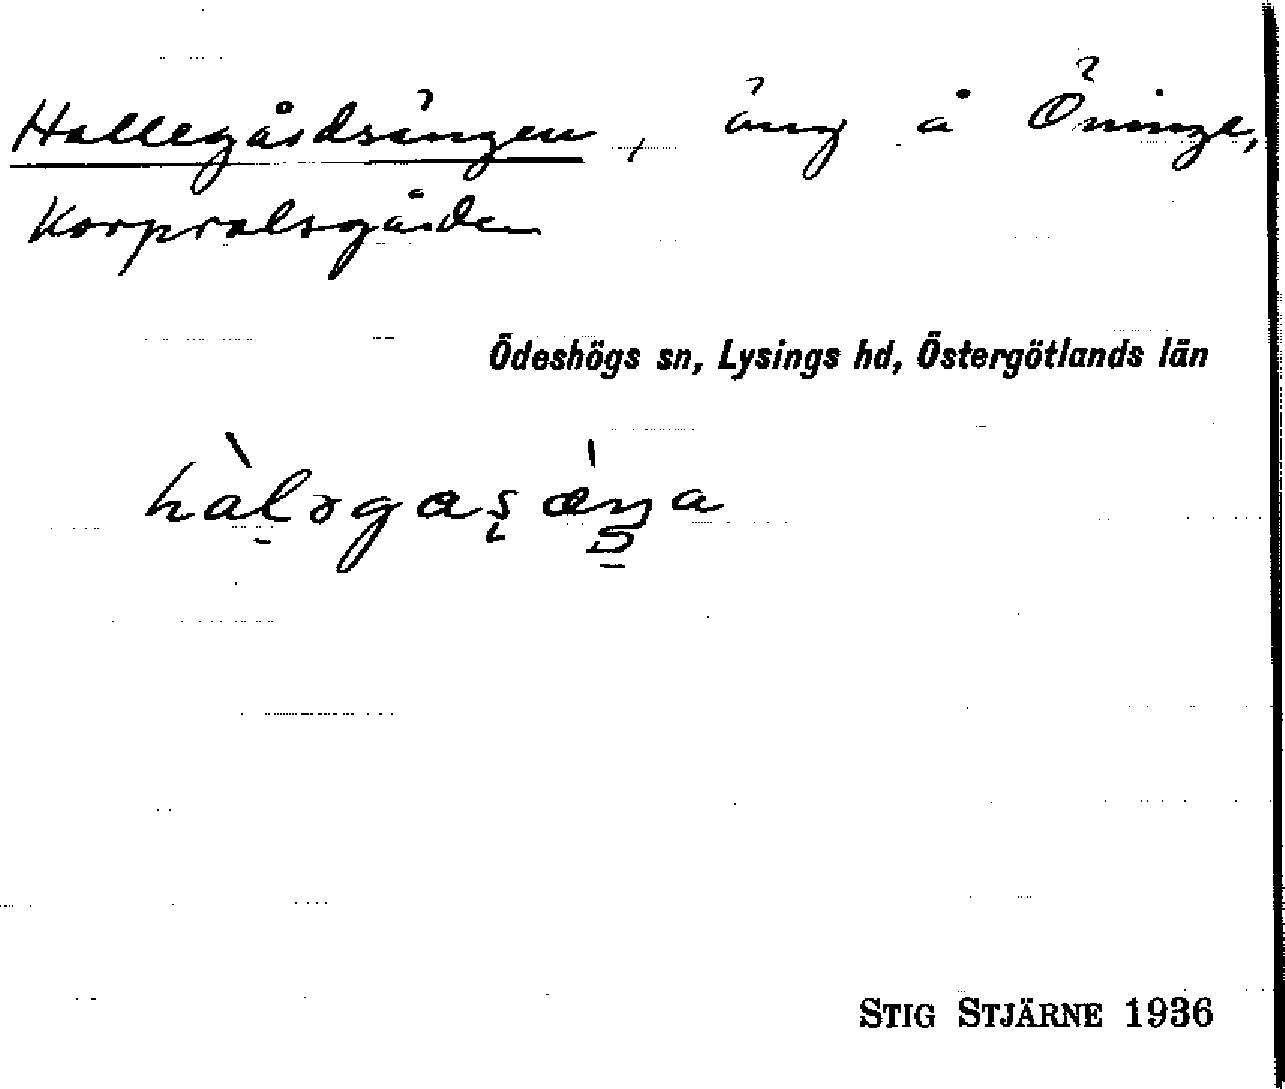 Hallegårdsängen, äng å Öninge,
Korpralsgården
Ödeshögs sn, Lysings hd, Östergötlands län
STIG STJÄRNE 1936